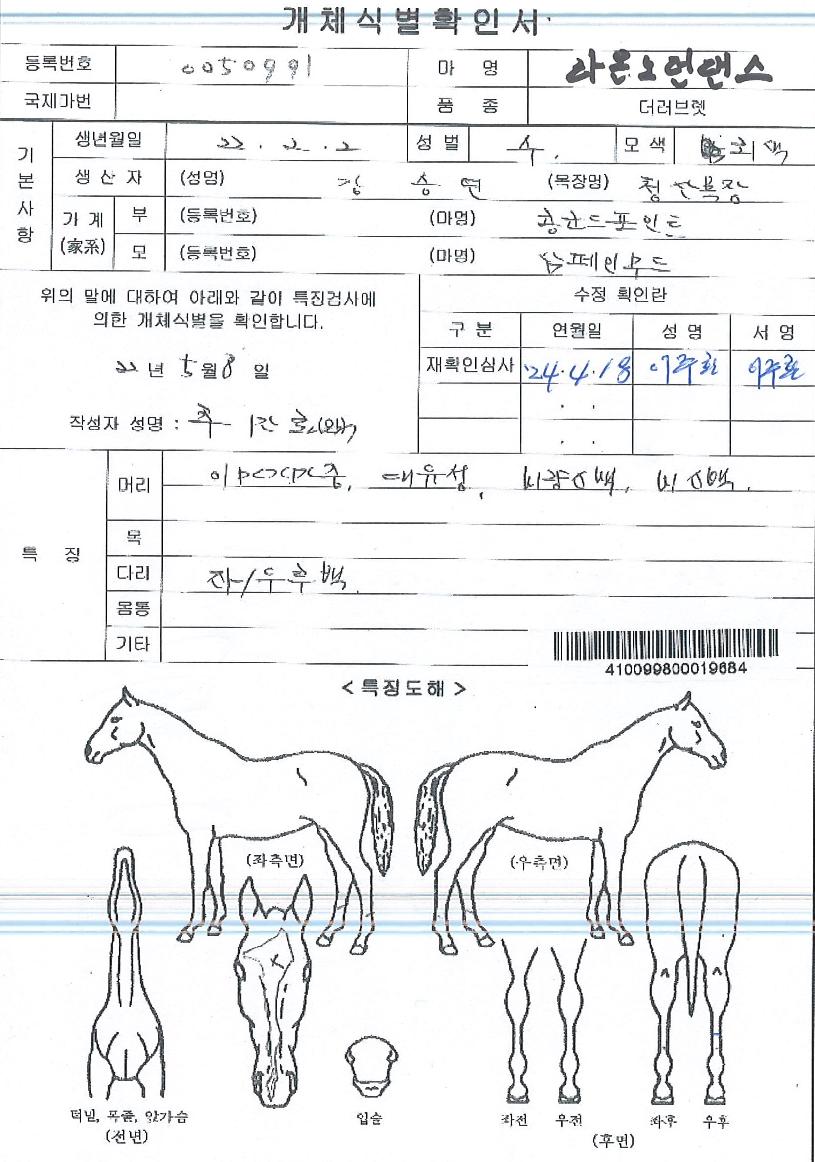 개체식별확인서
등록번호 0050991 마 명 라온노먼댄스
국제마번 품 종 더러브렛
기본사항
생년월일 22 . 2 . 2 성 별 수. 모 색 회색
생 산 자 (성명) 강 승 연 (목장명)
가 계 (家系) 부 (등록번호) (마명) 콩코드포인트
모 (등록번호) (마명) 샴페인무드
위의 말에 대하여 아래와 같이 특징검사에
의한 개체식별을 확인합니다.
22 년 5 월 8 일
작성자 성명 :
수정 확인란
구 분 연월일 성 명 서 명
재확인심사 '24.4.18 이주환 이주환
. .
. .
특 징
머리 대유성, 비량소백,
목
다리 좌/우후백
몸통
기타
410099800019684
< 특징도해 >
(좌측면) (우측면)
턱밑, 목줄, 앞가슴
(전면)
입술
좌전 우전 좌후 우후
(후면)